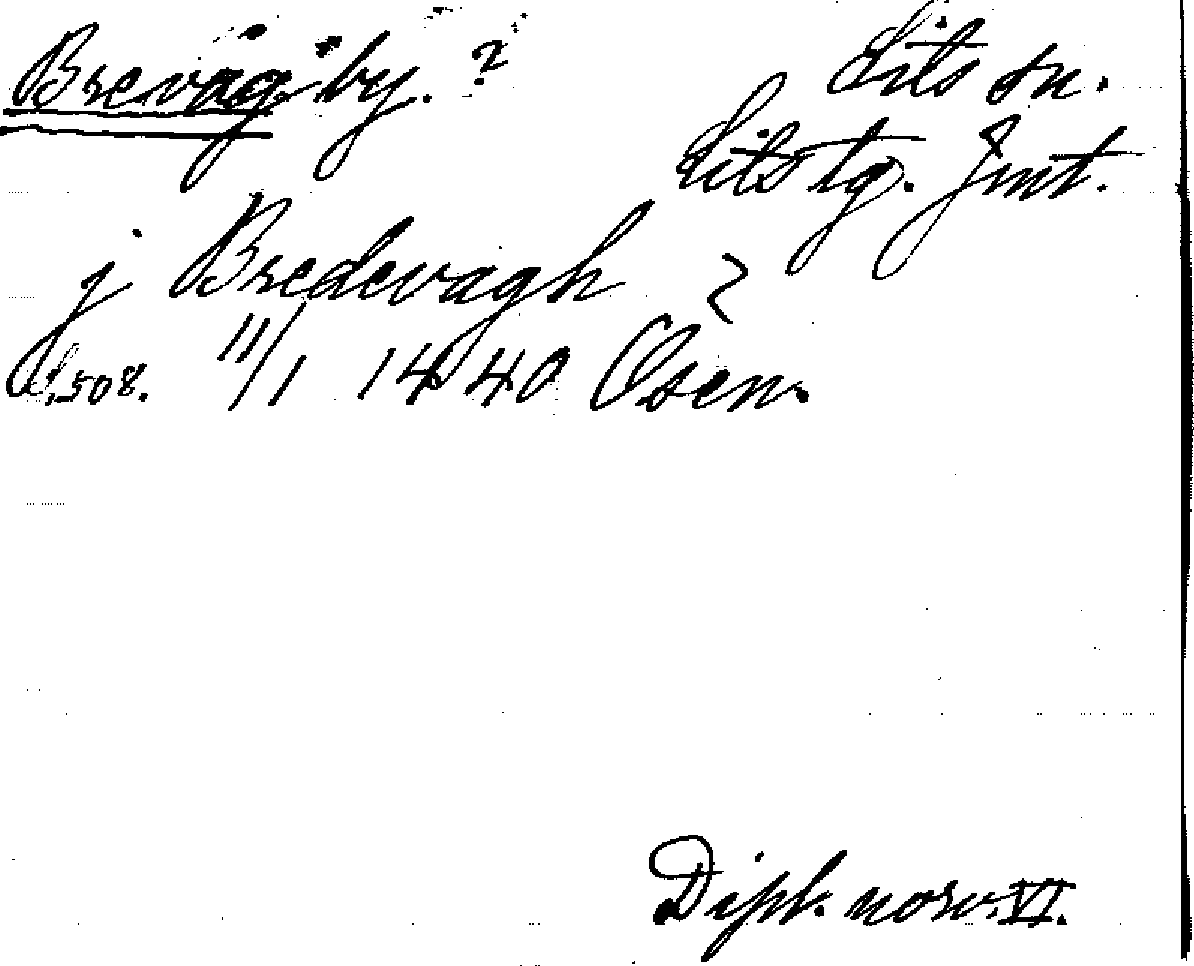 Brevåg by. ? Lits sn.
Lits tg. Jmt.
j Bredevagh ?
S. 508. 11/1 1440 Osen.
Dipl. norv. VI.